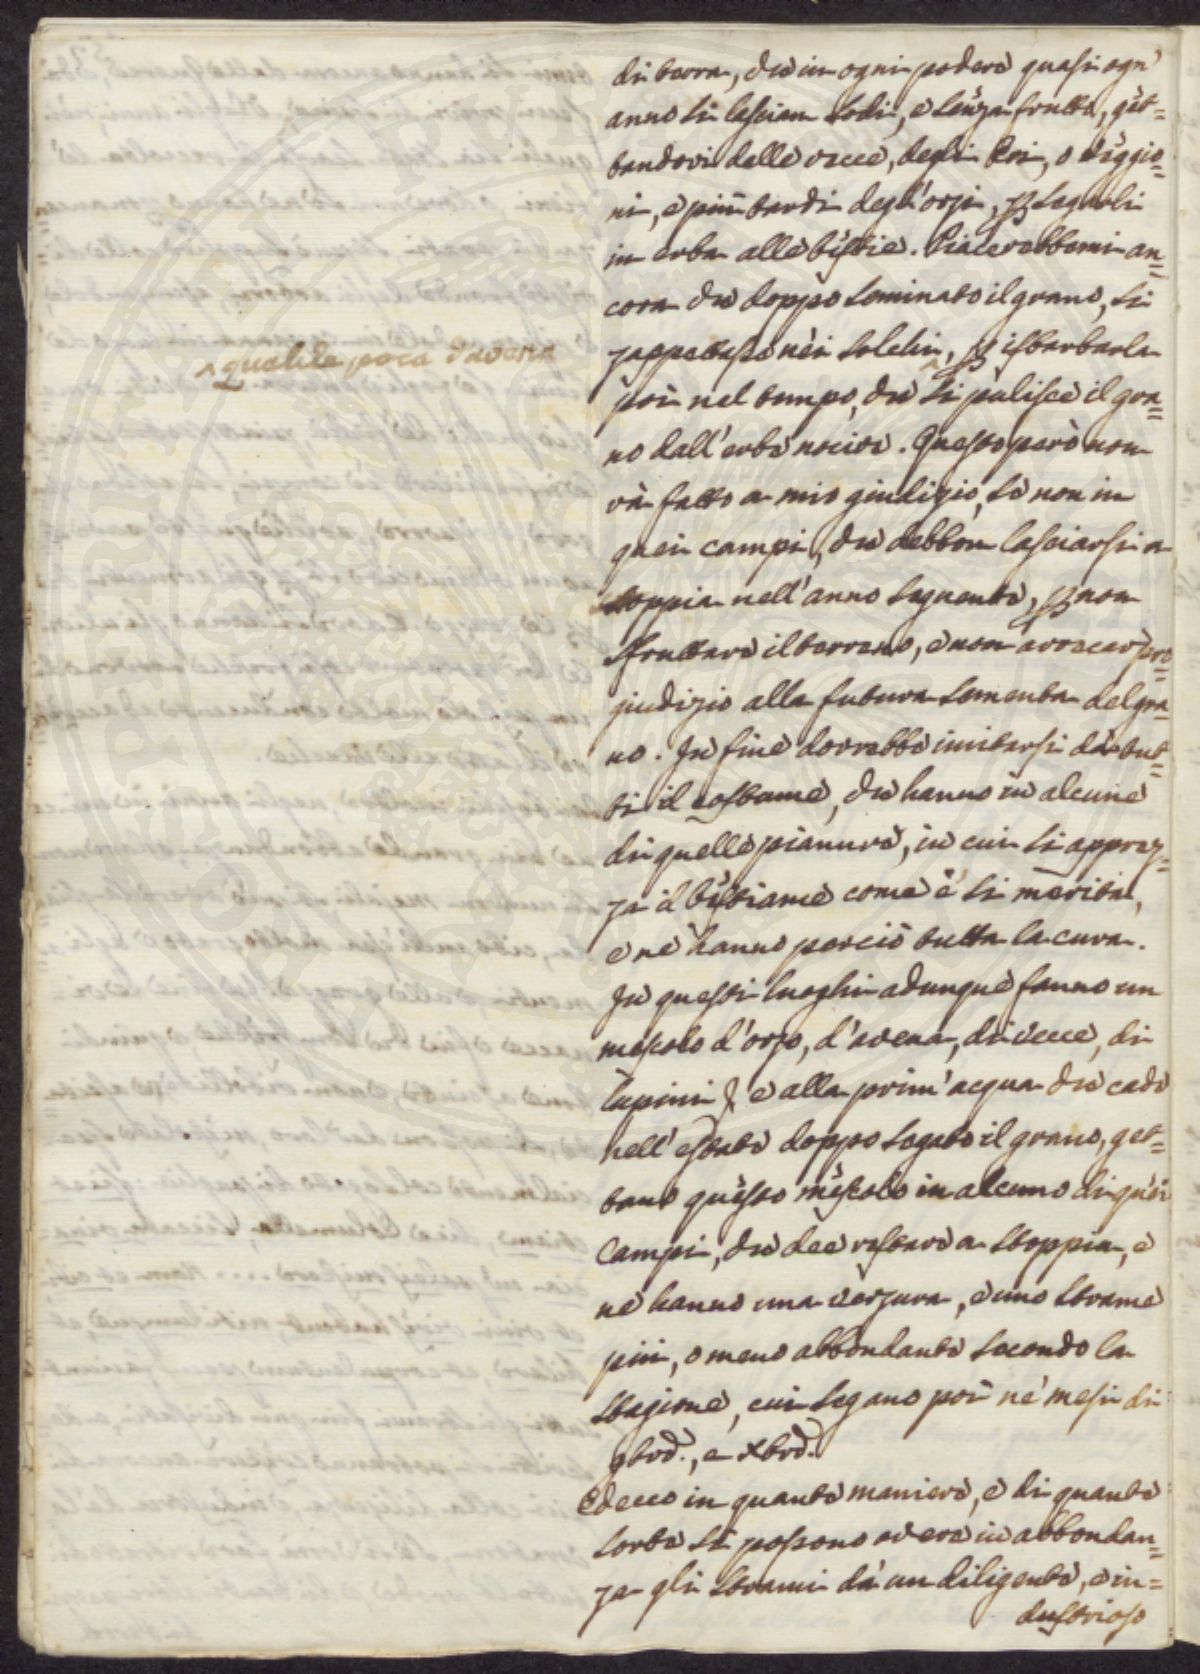 di terra, che in ogni podere quasi ogn'
anno si lasciano sodi, e senza frutto, get=
tandovi delle vecce, degli Eri, o veggio=
ni, e più tardi degl'orzi, per segarli
in erba alle bestie. Piacerebbemi an=
cora che doppo seminato il grano, si
zappettasse nei solchi, per isbarbarla
^ qualche poca d'avena
poi nel tempo, che si pulisce il gra=
no dall'erbe nocive. Questo però non
và fatto a mio giudizio, se non in
quei campi, che debbon lasciarsi a
stoppia nell'anno seguente, per non
sfruttare il terreno, e non arrecar pre=
judizio alla futura sementa del gra=
no. In fine dovrebbe imitarsi dà tut=
ti il costume, che hanno in alcune
di quelle pianure, in cui si apprez=
za il bestiame come è si merita,
e ne hanno perciò tutta la cura.
In questi luoghi adunque fanno un
mescolo d'orzo, d'avena, di vecce, di
lupini e alla prim'acqua che cade
nell'estate doppo segato il grano, get=
tano questo mescolo in alcuno di quei
Campi, che dee restare a stoppia, e
ne hanno una verzura, e uno strame
più, o meno abbondante secondo la
stagione, cui segano poi ne' mesi di
9bre., e Xbre.
Ed ecco in quante maniere, e di quante
sorte si possono avere in abbondan=
za gli strami dà un diligente, e in=
dustrioso